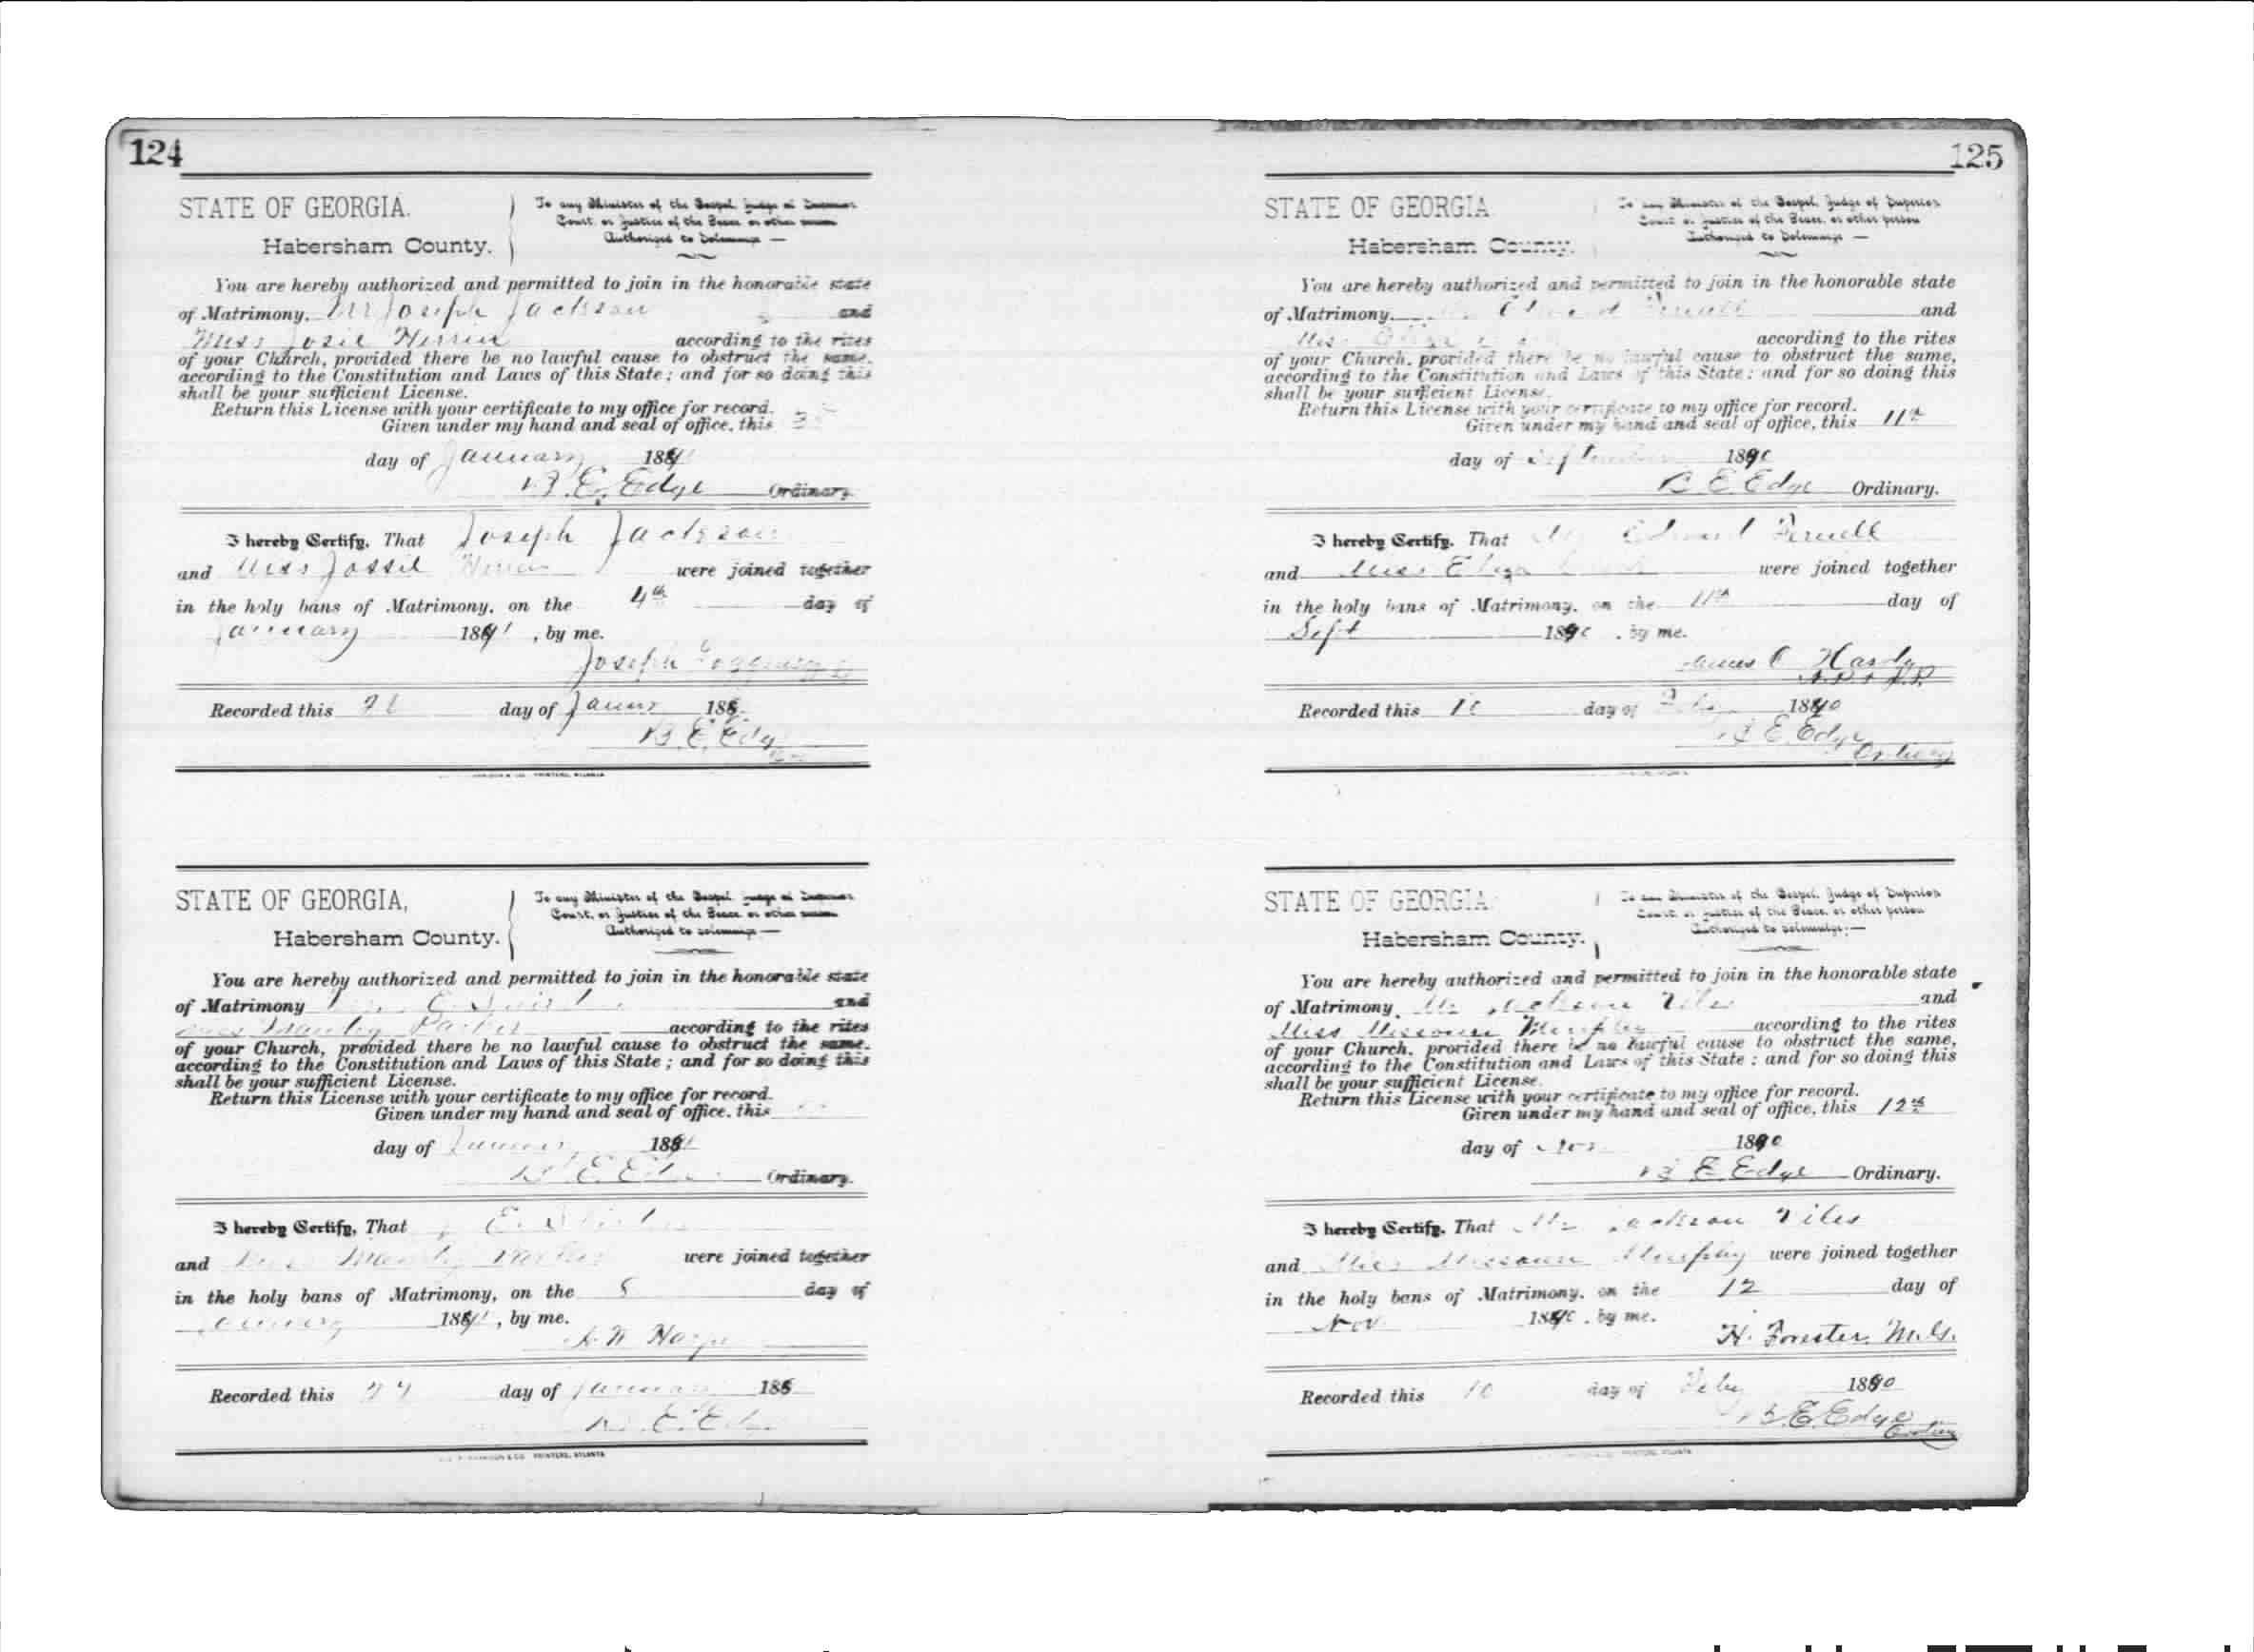 124
STATE OF GEORGIA.
Habersham County.
To any Minister of the Gospel, Judge of Superior
Court, or Justice of the Peace, or other person
Authorized to Solemnize —
You are hereby authorized and permitted to join in the honorable state
of Matrimony, Mr Joseph Jackson and
Miss Josie Herrin according to the rites
of your Church, provided there be no lawful cause to obstruct the same,
according to the Constitution and Laws of this State; and for so doing this
shall be your sufficient License.
Return this License with your certificate to my office for record.
Given under my hand and seal of office, this
day of January 1891
B. E. Edge Ordinary.
I hereby Certify, That Joseph Jackson
and Miss Jossie were joined together
in the holy bans of Matrimony, on the 4th day of
January 1891, by me.
Joseph
Recorded this day of January 188
B. E. Edge
STATE OF GEORGIA,
Habersham County.
To any Minister of the Gospel, Judge of Superior
Court, or Justice of the Peace, or other person
Authorized to solemnize —
You are hereby authorized and permitted to join in the honorable state
of Matrimony E. and
Parker according to the rites
of your Church, provided there be no lawful cause to obstruct the same,
according to the Constitution and Laws of this State; and for so doing this
shall be your sufficient License.
Return this License with your certificate to my office for record.
Given under my hand and seal of office, this
day of January 1891
B. E. Edge Ordinary.
I hereby Certify, That E.
and were joined together
in the holy bans of Matrimony, on the day of
January 1891, by me.
Recorded this 27 day of January 188
B. E. Edge
125
STATE OF GEORGIA
Habersham County.
To any Minister of the Gospel, Judge of Superior
Court or Justice of the Peace, or other person
Authorized to Solemnize —
You are hereby authorized and permitted to join in the honorable state
of Matrimony and
Miss according to the rites
of your Church, provided there be no lawful cause to obstruct the same,
according to the Constitution and Laws of this State; and for so doing this
shall be your sufficient License.
Return this License with your certificate to my office for record.
Given under my hand and seal of office, this 11th
day of September 1890
B. E. Edge Ordinary.
I hereby Certify, That Mr
and Miss Eliza were joined together
in the holy bans of Matrimony, on the 11th day of
Sept 1890, by me.
James C Hardy
Recorded this 10 day of Feby 1890
B E Edge
Ordinary
STATE OF GEORGIA
Habersham County.
To any Minister of the Gospel, Judge of Superior
Court, or Justice of the Peace, or other person
Authorized to solemnize, —
You are hereby authorized and permitted to join in the honorable state
of Matrimony, Mr Jackson and
Miss Missouri Murphy according to the rites
of your Church, provided there be no lawful cause to obstruct the same,
according to the Constitution and Laws of this State; and for so doing this
shall be your sufficient License.
Return this License with your certificate to my office for record.
Given under my hand and seal of office, this 12th
day of Nov 1890
B E Edge Ordinary.
I hereby Certify, That Mr Jackson
and Miss Missouri Murphy were joined together
in the holy bans of Matrimony, on the 12 day of
Nov 1890, by me.
H. Forester M.G.
Recorded this 10 day of Feby 1890
B. E. Edge
Ordinary